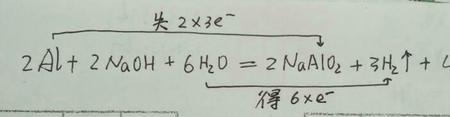 失 2×3e⁻
2Al + 2NaOH + 6H₂O = 2NaAlO₂ + 3H₂↑ +
得 6×e⁻